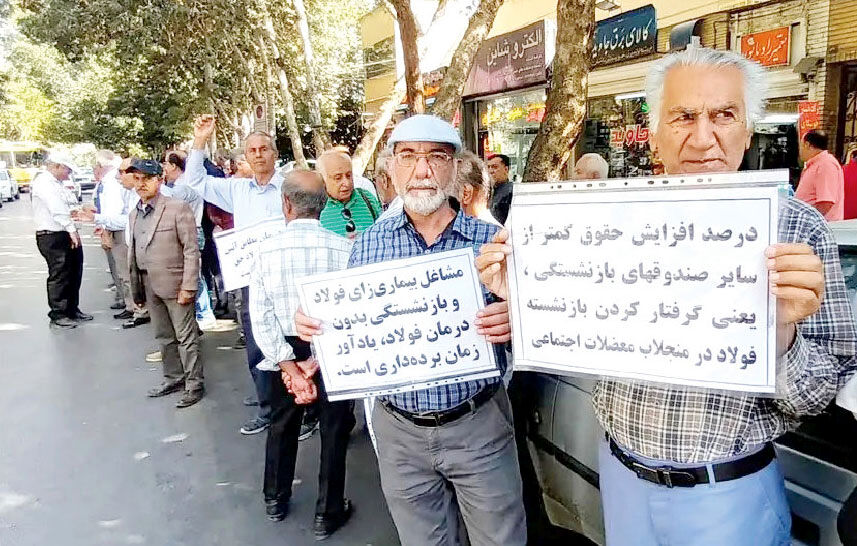 الکترو شاین
کالای برق
درصد افزایش حقوق کمتر از
سایر صندوقهای بازنشستگی ،
یعنی گرفتار کردن بازنشسته
فولاد در منجلاب معضلات اجتماعی
مشاغل بیماری‌زای فولاد
و بازنشستگی بدون
درمان فولاد، یادآور
زمان برده‌داری است.